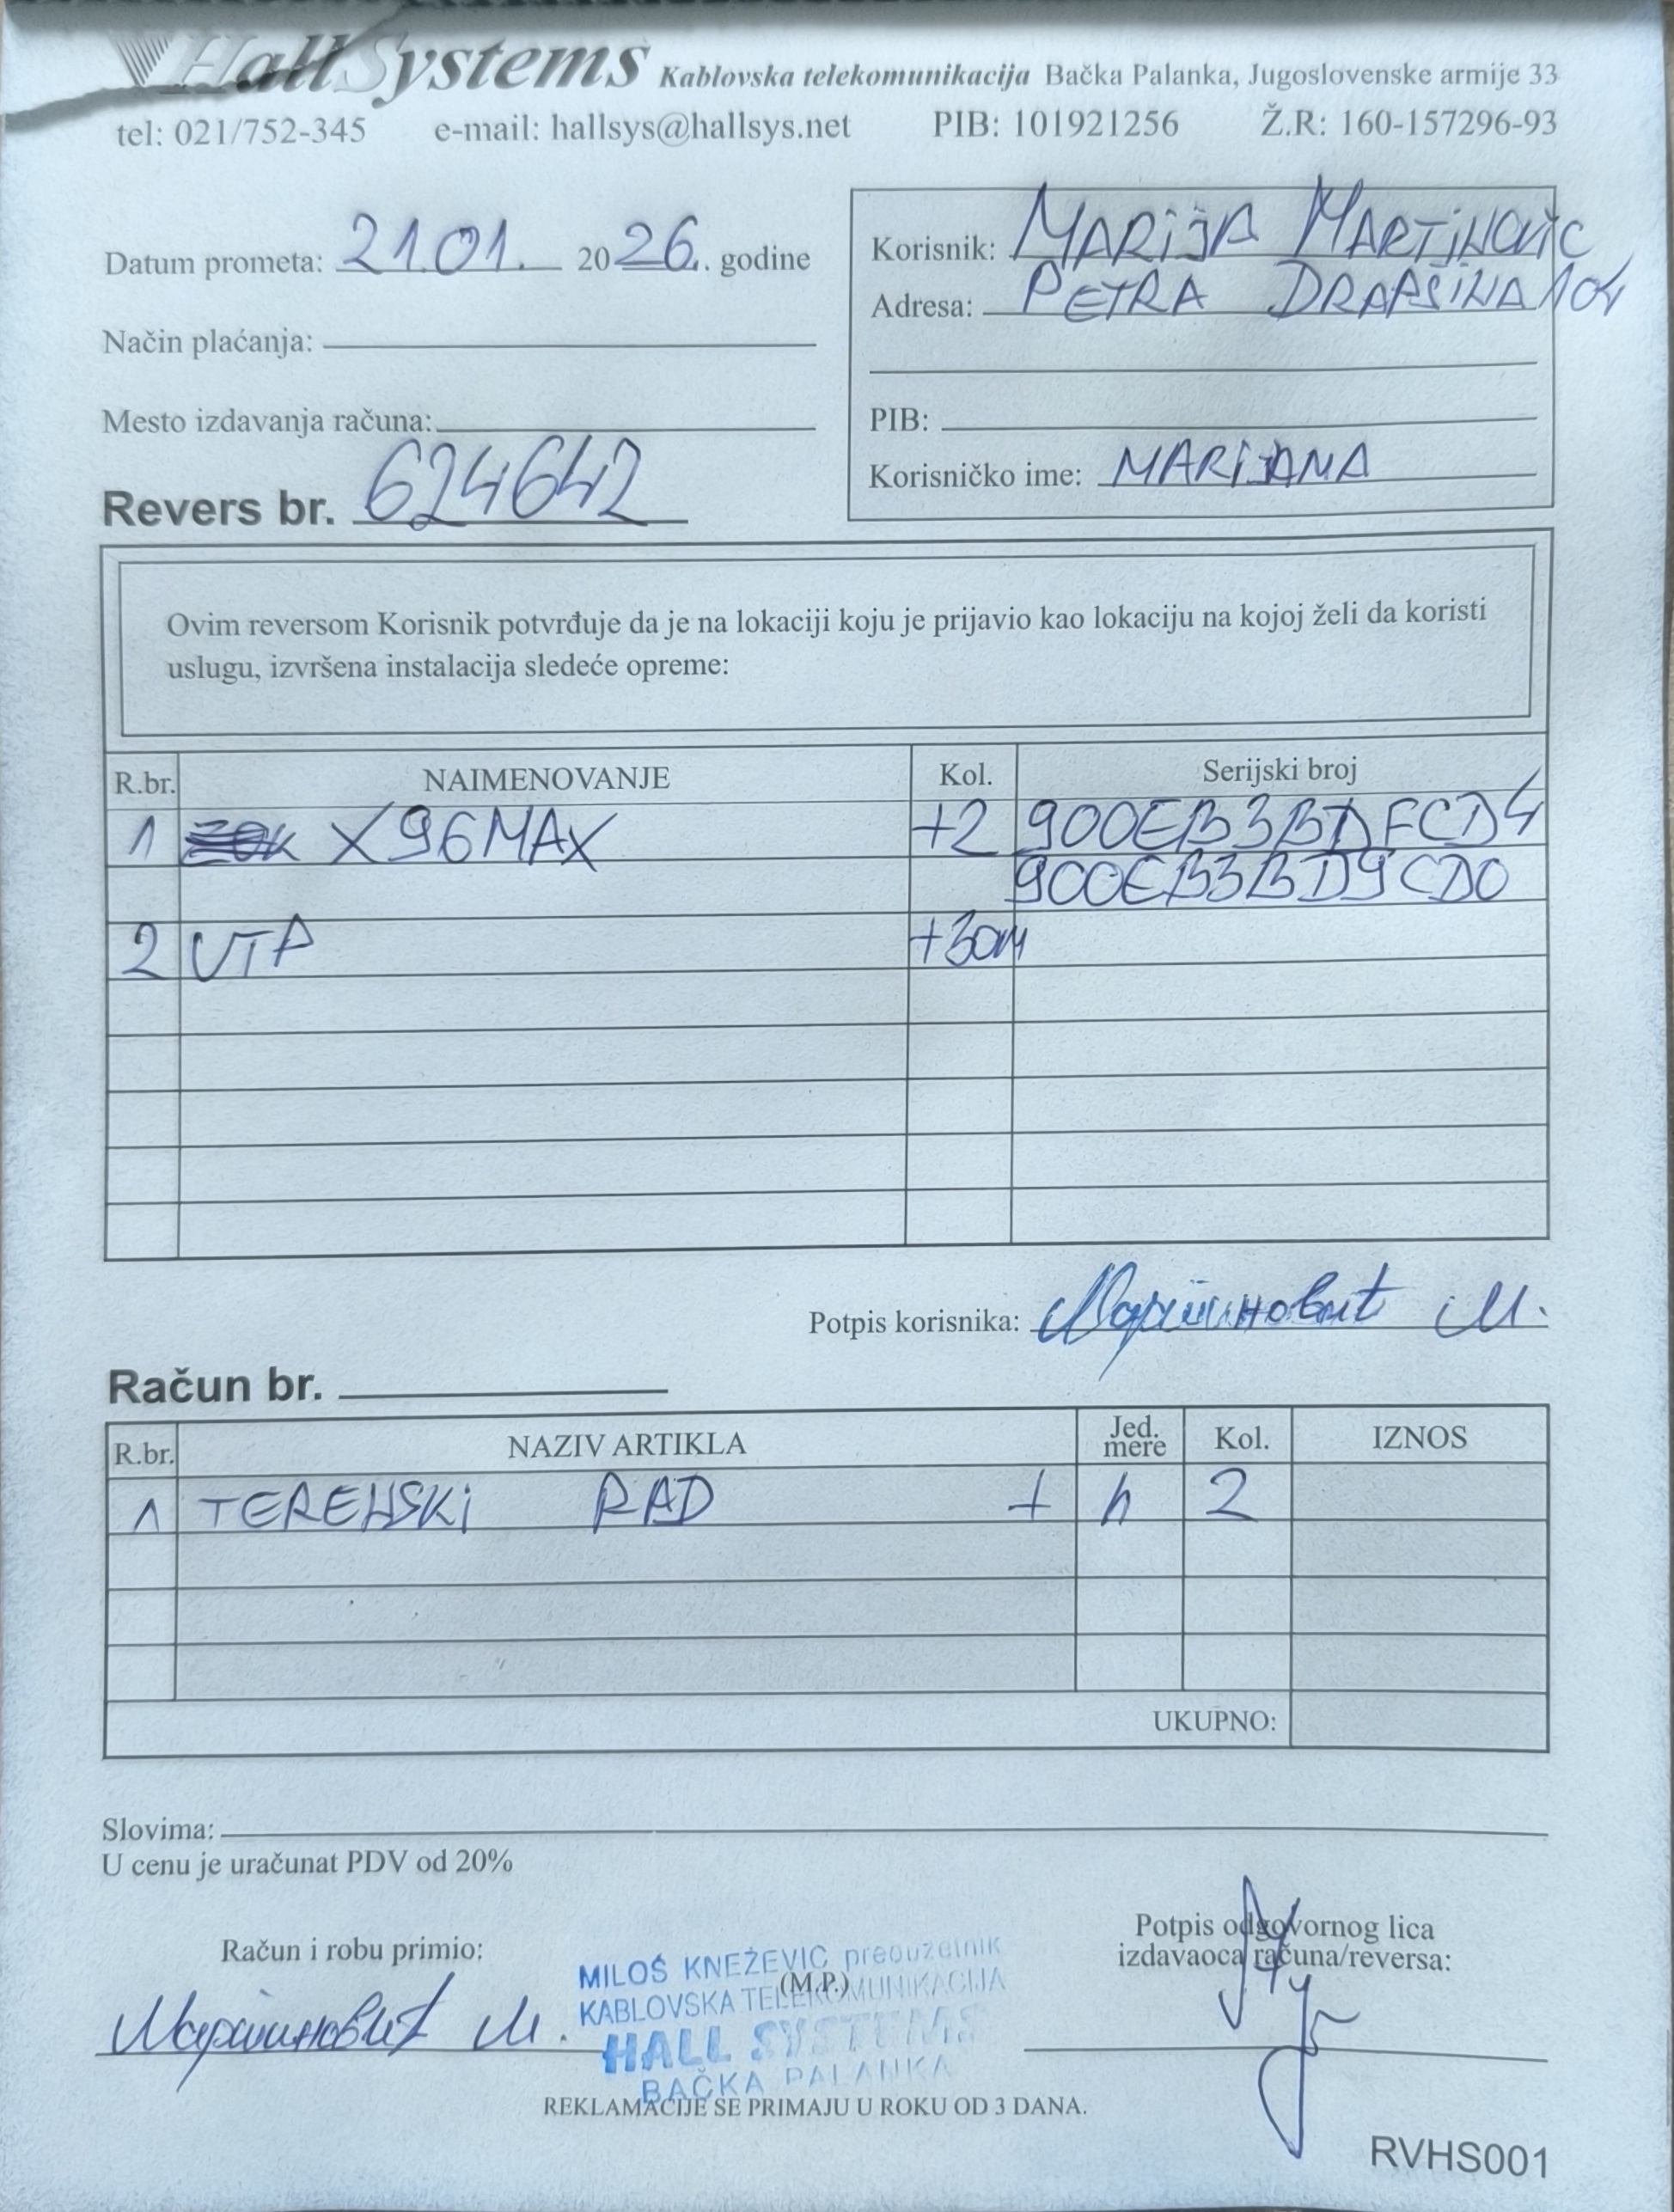 HallSystems Kablovska telekomunikacija Bačka Palanka, Jugoslovenske armije 33
tel: 021/752-345 e-mail: hallsys@hallsys.net PIB: 101921256 Ž.R: 160-157296-93
Datum prometa: 21.01. 2026. godine
Način plaćanja:
Mesto izdavanja računa:
Revers br. 624642
Korisnik: MARIJA MARTINOVIĆ
Adresa: PETRA DRAPŠINA 104
PIB:
Korisničko ime: MARIJANA
Ovim reversom Korisnik potvrđuje da je na lokaciji koju je prijavio kao lokaciju na kojoj želi da koristi
uslugu, izvršena instalacija sledeće opreme:
R.br. NAIMENOVANJE Kol. Serijski broj
1 X96MAX +2 900EB3BDFCD4
900EB3BD9CD0
2 UTP +30m
Potpis korisnika: Мартиновић М.
Račun br.
R.br. NAZIV ARTIKLA Jed. mere Kol. IZNOS
1 TERENSKI RAD + h 2
UKUPNO:
Slovima:
U cenu je uračunat PDV od 20%
Račun i robu primio:
Мартиновић М.
MILOŠ KNEŽEVIĆ preduzetnik
(M.P.)
KABLOVSKA TELEKOMUNIKACIJA
HALL SYSTEMS
BAČKA PALANKA
Potpis odgovornog lica
izdavaoca računa/reversa:
REKLAMACIJE SE PRIMAJU U ROKU OD 3 DANA.
RVHS001